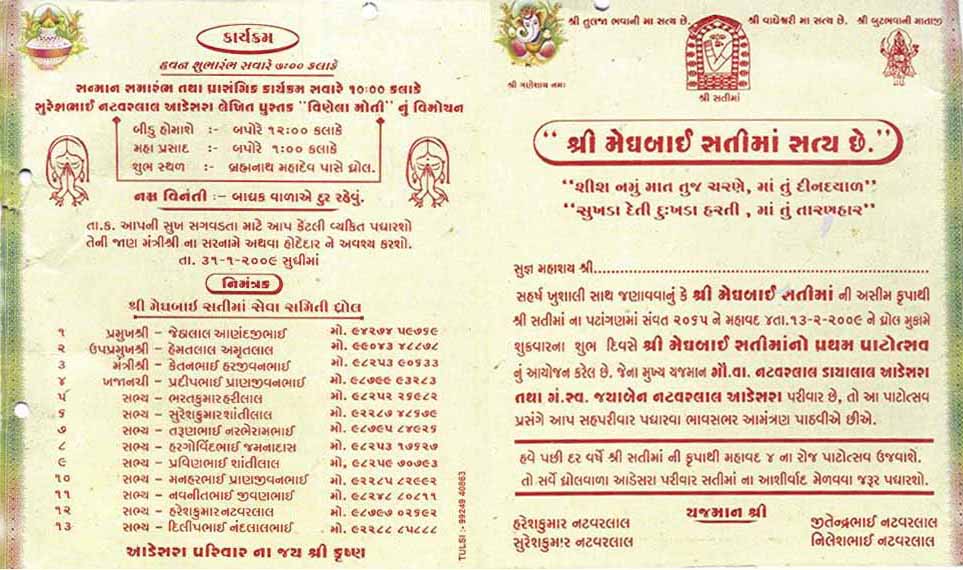 કાર્યક્રમ
હવન શુભારંભ સવારે ૭:૦૦ કલાકે
સન્માન સમારંભ તથા પ્રાસંગિક કાર્યક્રમ સવારે ૧૦:૦૦ કલાકે
સુરેશભાઈ નટવરલાલ આડેસરા લેખિત પુસ્તક "વિણેલા મોતી" નું વિમોચન
બીડુ હોમાશે :- બપોરે ૧૨:૦૦ કલાકે
મહા પ્રસાદ :- બપોરે ૧:૦૦ કલાકે
શુભ સ્થળ :- બ્રહ્મનાથ મહાદેવ પાસે ધ્રોલ.
નમ્ર વિનંતી :- બાધક વાળાએ દુર રહેવું.
તા.ક. આપની સુખ સગવડતા માટે આપ કેટલી વ્યકિત પધારશો
તેની જાણ મંત્રીશ્રી ના સરનામે અથવા હોદેદાર ને અવશ્ય કરશો.
તા. ૩૧-૧-૨૦૦૯ સુધીમાં
નિમંત્રક
શ્રી મેઘબાઈ સતીમાં સેવા સમિતી ધ્રોલ
૧ પ્રમુખશ્રી - જેઠાલાલ આણંદજીભાઈ મો. ૯૪૨૭૪ ૫૯૭૬૯
૨ ઉપપ્રમુખશ્રી - હેમતલાલ અમૃતલાલ મો. ૯૯૦૪૩ ૪૮૮૭૮
૩ મંત્રીશ્રી - કેતનભાઈ હરજીવનભાઈ મો. ૯૮૨૫૩ ૯૦૬૩૩
૪ ખજાનચી - પ્રદીપભાઈ પ્રાણજીવનભાઈ મો. ૯૮૭૯૯ ૯૩૨૮૩
૫ સભ્ય - ભરતકુમાર હરીલાલ મો. ૯૮૨૫૨ ૨૬૯૮૨
૬ સભ્ય - સુરેશકુમાર શાંતીલાલ મો. ૯૨૨૮૭ ૪૮૬૭૯
૭ સભ્ય - તરૂણભાઈ નરભેરામભાઈ મો. ૯૮૭૯૫ ૮૪૯૨૬
૮ સભ્ય - હરગોવિંદભાઈ જમનાદાસ મો. ૯૮૨૫૩ ૧૭૬૨૭
૯ સભ્ય - પ્રવિણભાઈ શાંતીલાલ મો, ૯૮૨૫૯ ૭૦૭૯૩
૧૦ સભ્ય - મનહરભાઈ પ્રાણજીવનભાઈ મો. ૯૨૨૮૫ ૮૨૯૯૨
૧૧ સભ્ય - નવનીતભાઈ જીવણભાઈ મો. ૯૮૨૪૮ ૮૦૮૧૧
૧૨ સભ્ય - હરેશકુમાર નટવરલાલ મો. ૯૮૭૯૭ ૦૨૬૯૨
૧૩ સભ્ય - દિલીપભાઈ નંદલાલભાઈ મો. ૯૨૨૮૮ ૮૫૮૮૮
આડેસરા પરિવાર ના જય શ્રી કૃષ્ણ
TULSI :- 99249 40863
શ્રી તુલજા ભવાની મા સત્ય છે. શ્રી વાઘેશ્વરી મા સત્ય છે. શ્રી બુટભવાની માતાજી
શ્રી ગણેશાય નમઃ
શ્રી સતીમાં
"શ્રી મેઘબાઈ સતીમાં સત્ય છે."
"શીશ નમું માત તુજ ચરણે, માં તું દીનદયાળ"
"સુખડા દેતી દુઃખડા હરતી, માં તું તારણહાર"
સુજ્ઞ મહાશય શ્રી
સહર્ષ ખુશાલી સાથ જણાવવાનું કે શ્રી મેઘબાઈ સતીમાં ની અસીમ કૃપાથી
શ્રી સતીમાં ના પટાંગણમાં સંવત ૨૦૬૫ ને મહાવદ ૪તા.૧૩-૨-૨૦૦૯ ને ધ્રોલ મુકામે
શુક્રવારના શુભ દિવસે શ્રી મેઘબાઈ સતીમાંનો પ્રથમ પાટોત્સવ
નું આયોજન કરેલ છે. જેના મુખ્ય યજમાન ગૌ.વા. નટવરલાલ ડાયાલાલ આડેસરા
તથા ગં.સ્વ. જયાબેન નટવરલાલ આડેસરા પરીવાર છે, તો આ પાટોત્સવ
પ્રસંગે આપ સહપરીવાર પધારવા ભાવસભર આમંત્રણ પાઠવીએ છીએ.
હવે પછી દર વર્ષે શ્રી સતીમાં ની કૃપાથી મહાવદ ૪ ના રોજ પાટોત્સવ ઉજવાશે.
તો સર્વે ધ્રોલવાળા આડેસરા પરીવાર સતીમાં ના આશીર્વાદ મેળવવા જરૂર પધારશો.
યજમાન શ્રી
હરેશકુમાર નટવરલાલ જીતેન્દ્રભાઈ નટવરલાલ
સુરેશકુમાર નટવરલાલ નિલેશભાઈ નટવરલાલ